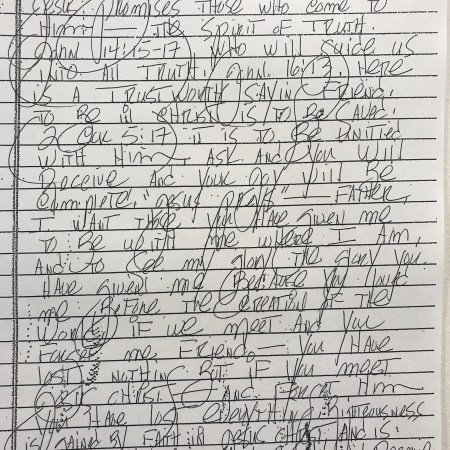 Jesus promises those who come to
Him — the Spirit of Truth.
John 14:15-17 who will guide us
into all truth. John. 16:13. Here
is a trustworthy saving friend.
to be in Christ is to be saved.
2 Cor 5:17 it is to be united
with Him. Ask and you will
receive and your joy will be
complete. Jesus prays — Father,
I want those you have given me
to be with me where I am,
and to see my glory the glory you
have given me because you loved
me before the creation of the
world. If we meet and you
forget me, friend you have
lost nothing but if you meet
Jesus Christ and forget Him
you have lost everything righteousness
is given by faith in Jesus Christ, and is